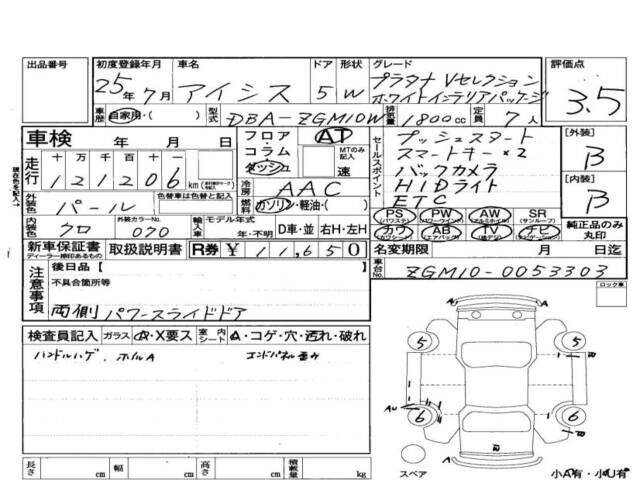 出品番号 初度登録年月 車名 ドア 形状 グレード 評価点
25年7月 アイシス 5 W プラタナ Vセレクション
ホワイトインテリアパッケージ
3.5
車歴 自家用・( ) 型式 DBA-ZGM10W 排気量 1800cc 定員 7人
車検 年 月 日
フロア・コラム・ダッシュ AT MTのみ記入 速
セールスポイント
プッシュスタート
スマートキー×2
バックカメラ
HIDライト
ETC
[外装] B
[内装] B
現在色を記入→
走行 十 万 千 百 十 一
121206 km
冷房 AAC
燃料 ガソリン・軽油・( )
外装色 パール 色替車は色替前の色
内装色 クロ 外装カラーNo. 070 輸入車 モデル年式 年・不明 D車・並 右H・左H
PS (パワステ) PW (パワーウインド) AW (アルミホイル) SR (サンルーフ)
カワ (カワシート) AB (エアバッグ) TV (地デジ) ナビ (ナビゲーション)
純正品のみ丸印
新車保証書 ディーラー捺印あるもの 取扱説明書 R券 ¥11,650
名変期限 月 日迄
車台No. ZGM10-0053303
注意事項
後日品【 】
不具合箇所等
両側パワースライドドア
ロック車
検査員記入 ガラス A・X要ス 室内シート A・コゲ・穴・汚れ・破れ
ハンドルハゲ、ホイルA エンドパネル歪み
A A
5 5
B
AU A
6 6
B
B
A
スペア
小A有・小U有
長さ cm 幅 cm 高さ cm 積載量 kg